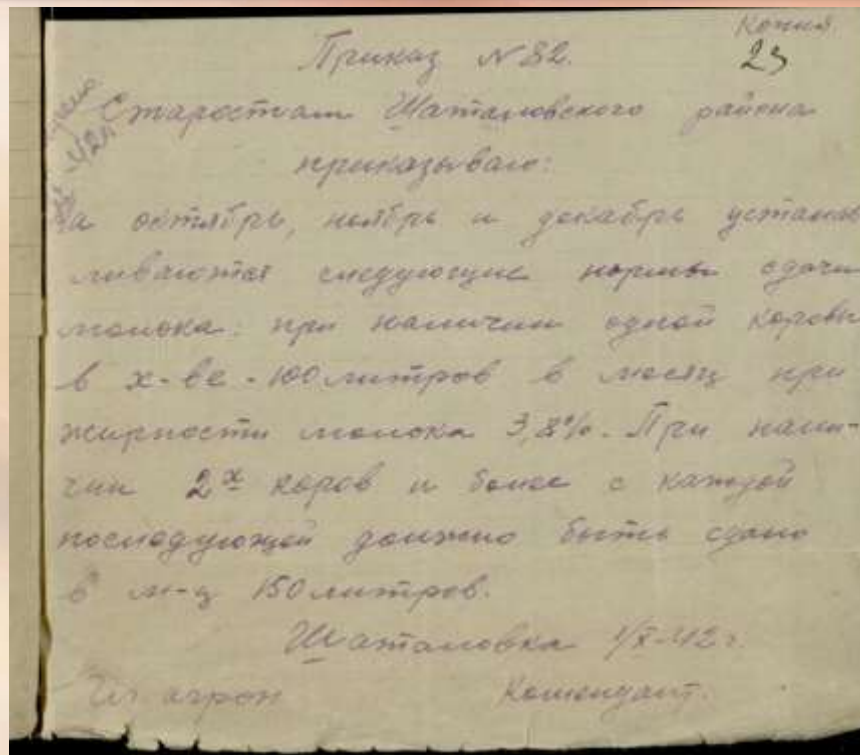 Копия.
23
Приказ № 82.
Старостам Шаталовского района
приказываю:
На октябрь, ноябрь и декабрь устанав
ливаются следующие нормы сдачи
молока: при наличии одной коровы
в х-ве - 100 литров в месяц при
жирности молока 3,8%. При нали-
чии 2х коров и более с каждой
последующей должно быть сдано
в м-ц 150 литров.
Шаталовка 1/X-42 г.
агрон Комендант.